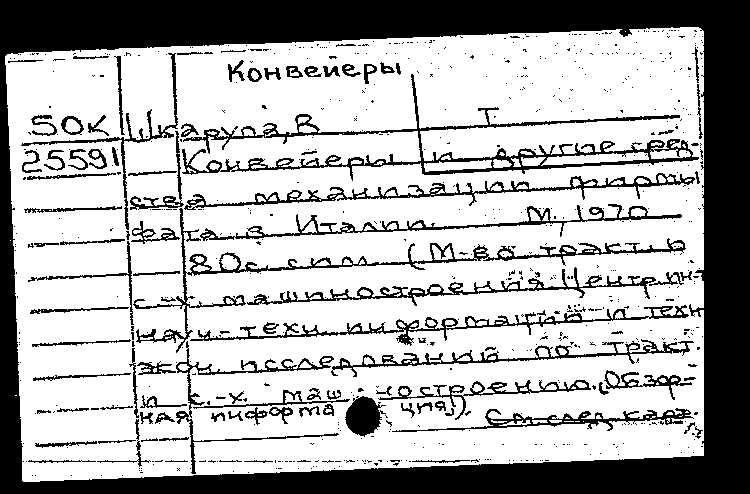 Конвейеры
50к Шкарупа, В Т
25591 Конвейеры и другие сред-
ства механизации фирмы
фата в Италии. М., 1970
80с. с илл. (М-во тракт. и
с.-х. машиностроения. Центр. ин-т
науч.-техн. информации и техн
экон. исследований по тракт.
и с.-х. машиностроению. (Обзор-
ная информация). См след карт.